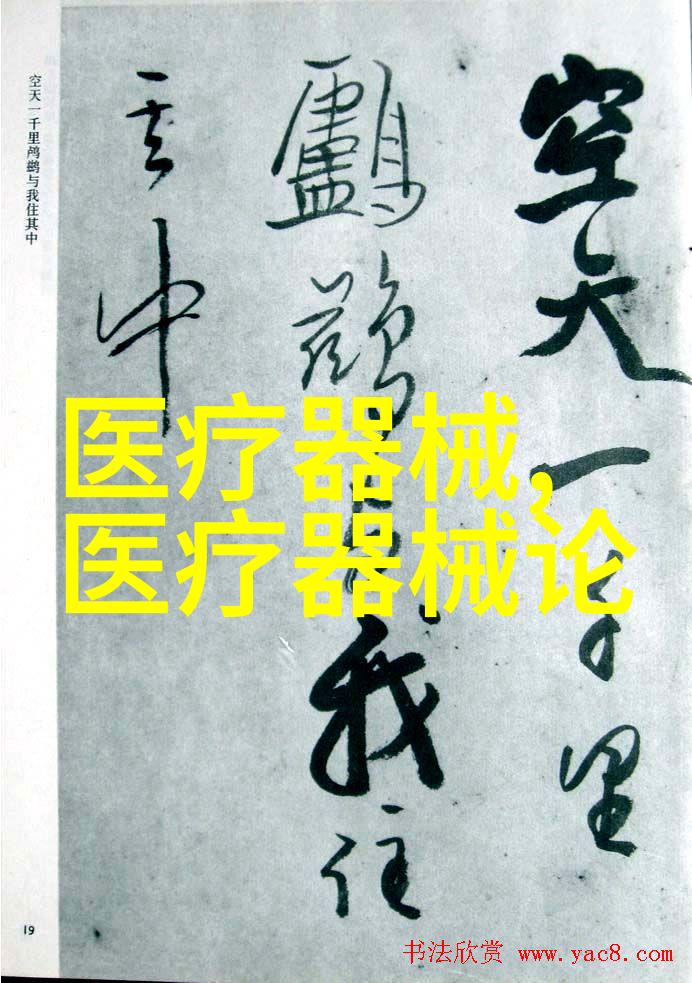 空天一千里
鸕鷀与我住
其中
空天一千里鸬鹚与我住其中
医疗器械,
医疗器械论
19
书法欣赏 www.yac8.com